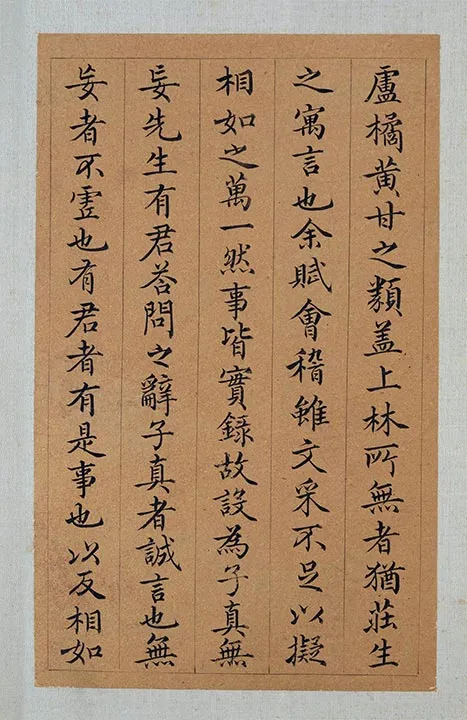 盧橘黄甘之類盖上林所無者猶莊生
之寓言也余賦會稽雖文采不足以擬
相如之萬一然事皆實録故設為子真無
妄先生有君荅問之辭子真者誠言也無
妄者不虚也有君者有是事也以反相如